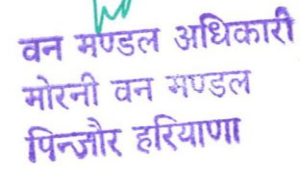 वन मण्डल अधिकारी
मोरनी वन मण्डल
पिन्जौर हरियाणा